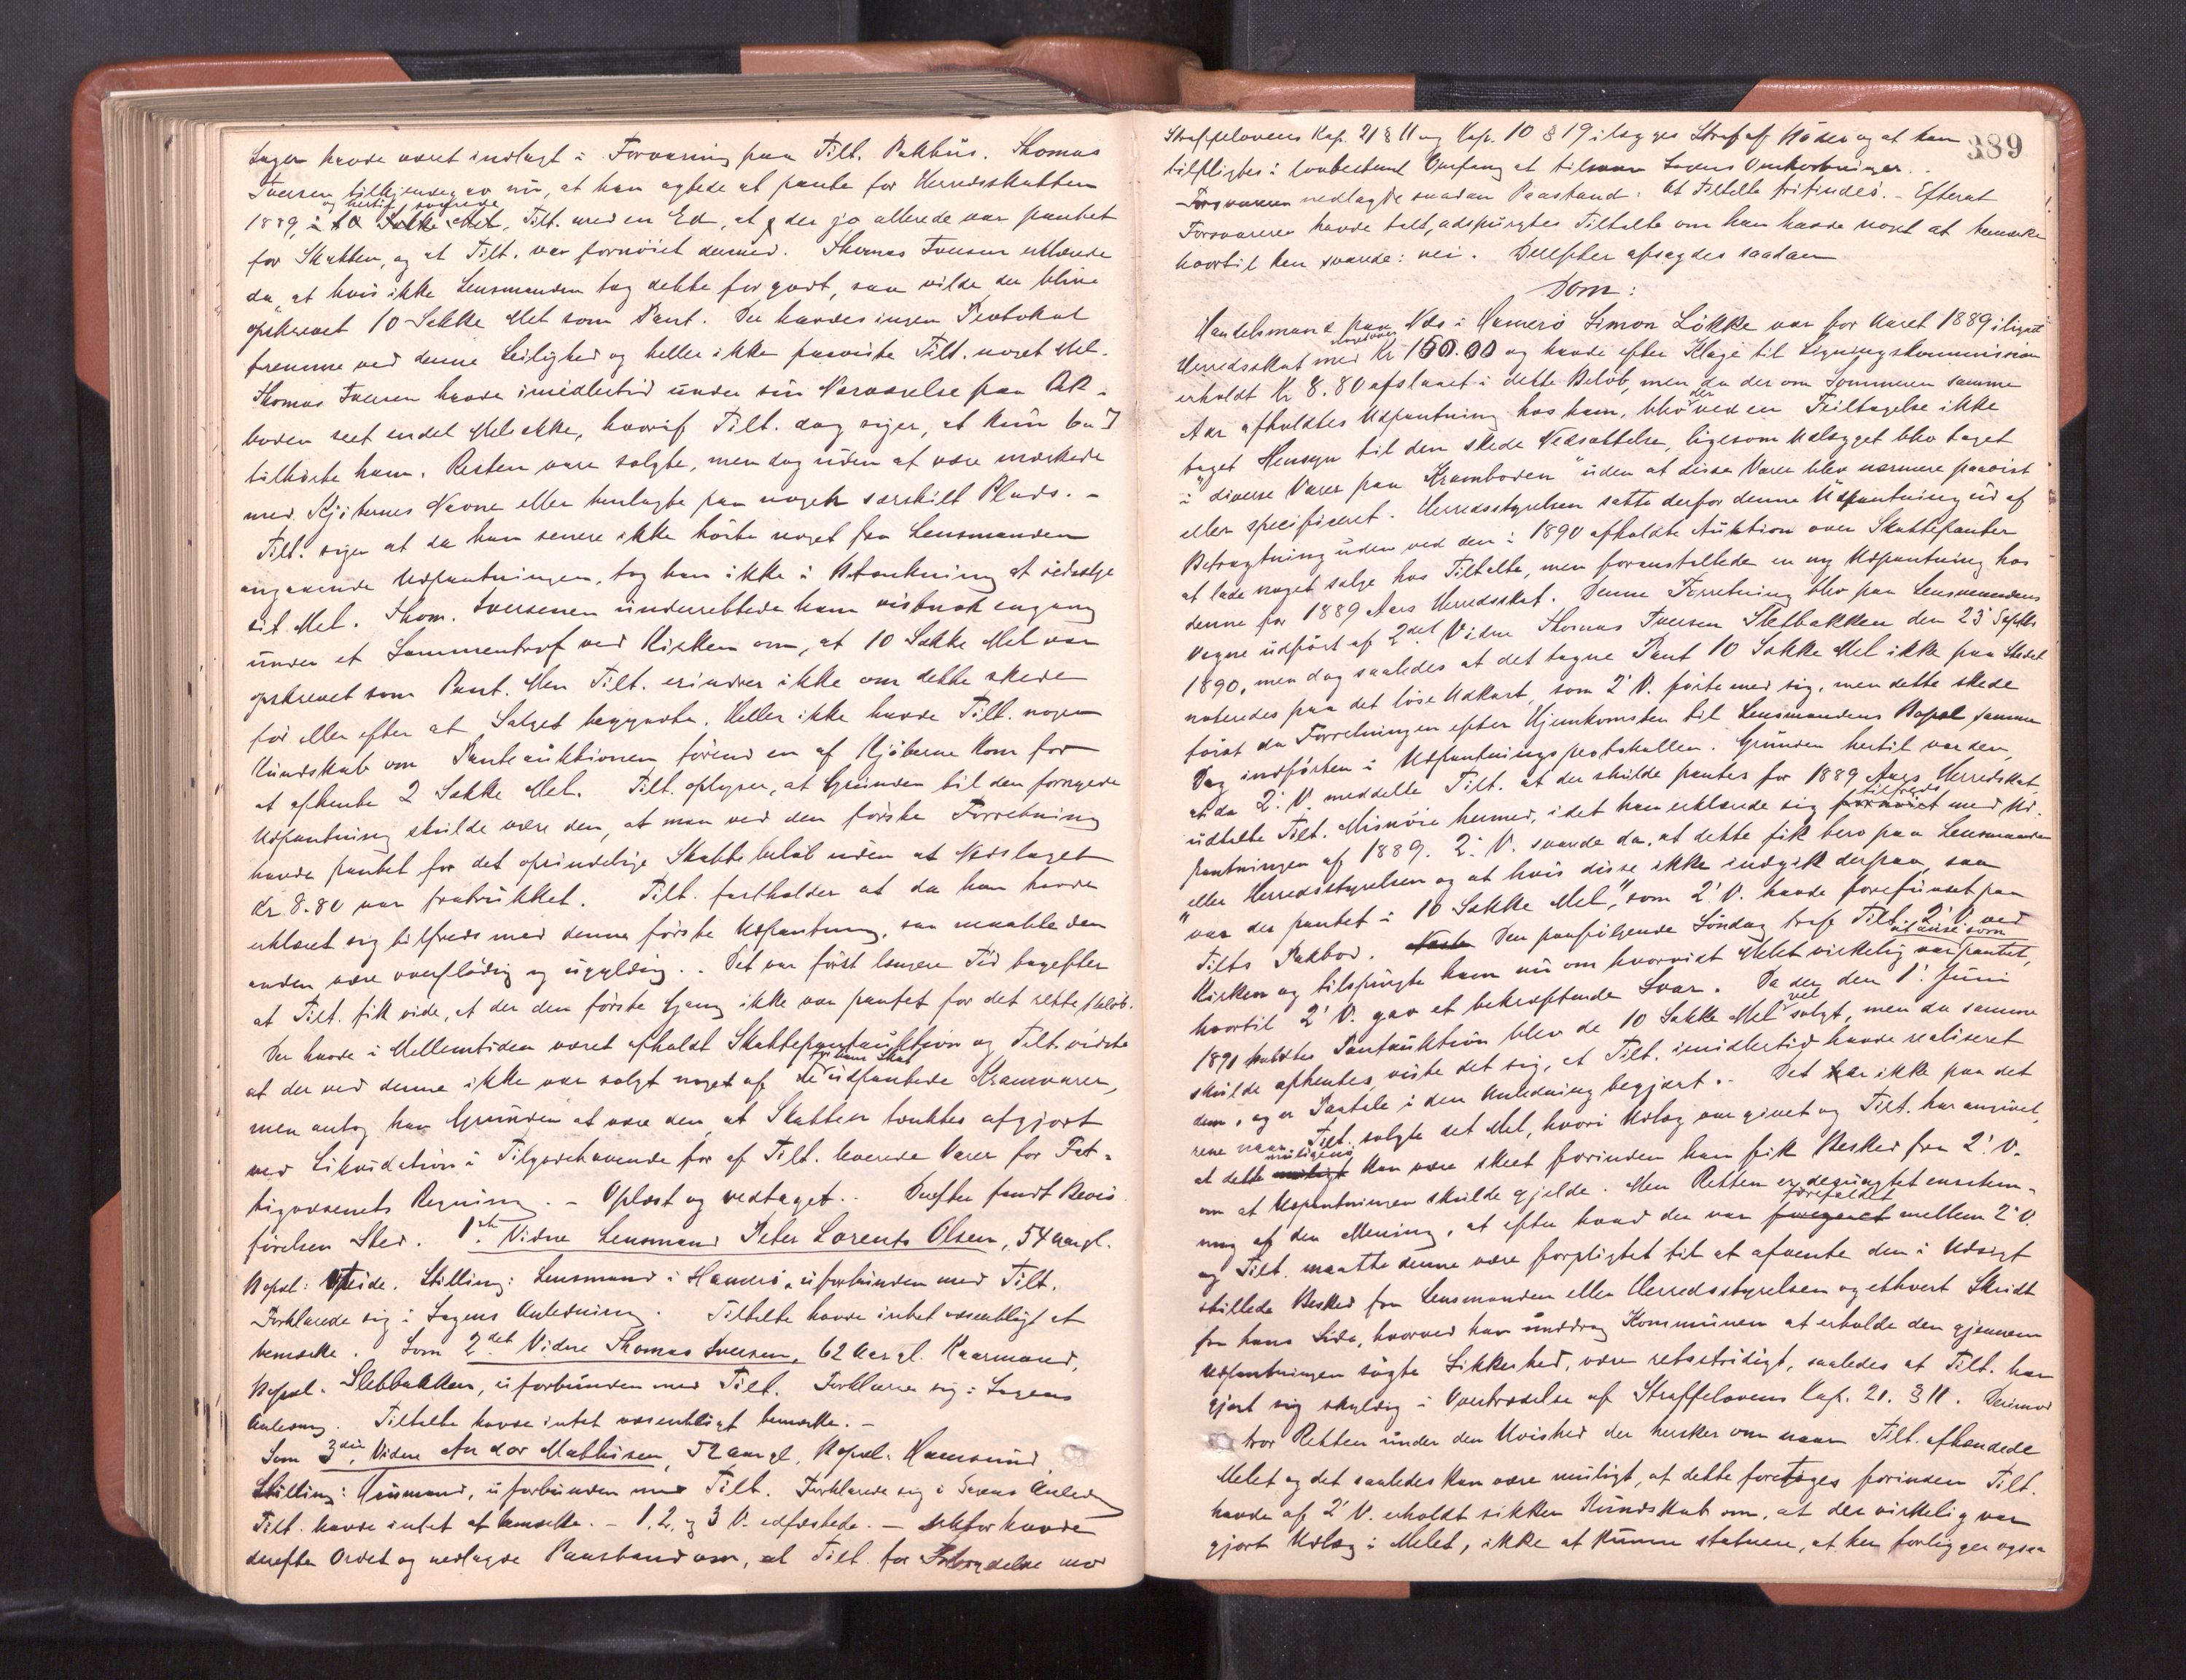 Sagen havde været indlagt i Forvaring paa Tilt. Pakhus. Thomas
Iversen tilkjendegav nu, at han agtede at pante for Herredsskatten
og hertil svarede
1889, i 10 Sække Mel, Tilt. med en Ed, at der jo allerede var pantet
for Skatten, og at Tilt. var fornøiet dermed. Thomas Iversen erklærede
da, at hvis ikke Lensmanden tog dette for godt, saa vilde der blive
opskrevet 10 Sække Mel som Pant. Der havdes ingen Protokol
fremme ved denne Leilighed og heller ikke paaviste Tilt. noget Mel.
Thomas Iversen havde imidlertid under sin Nærværelse paa Pak-
boden seet endel Melsække, hvoraf Tilt. dog siger, at kun 6 a 7
tilhørte ham. Resten vare solgte, men dog uden at være mærkede
med Kjøbernes Navne eller henlagte paa noget særskilt Plads. -
Tilt. siger at da han senere ikke hørte noget fra Lensmanden
angaaende Udpantningen, tog han ikke i Betænkning at udsælge
sit Mel. Thom. Iversen underrettede ham vistnok engang
under et Sammentræf ved Kirken om, at 10 Sække Mel var
opskrevet som Pant. Men Tilt. erindrer ikke om dette skede
før eller efter at Salget begyndte. Heller ikke havde Tilt. nogen
Kundskab om Panteauktionen førend en af Kjøberne kom for
at afhente 2 Sække Mel. Tilt. oplyser, at Grunden til den fornyede
Udpantning skulde være den, at man ved den første Forretning
havde pantet for det oprindelige Skattebeløb uden at Nedslaget
Kr 8.80 var fratrukket. Tilt. fastholder at da han havde
erklæret sig tilfreds med denne første Udpantning, saa maatte den
anden være overflødig og ugyldig. - Det var først længere Tid bagefter
at Tilt. fik vide, at der den første Gang ikke var pantet for det rette Beløb.
Der havde i Mellemtiden været afholdt Skattepantauktion og Tilt. vidste
for hans Skat
at der ved denne ikke var solgt noget af de udpantede Kramvarer,
men antog han Grunden at være den, at Skatten tænktes afgjort
ved Likvidation i Tilgodehavende for af Tilt. leverede Varer for Fat-
tigvæsenets Regning. - Oplæst og vedtaget. - Derefter fandt Bevis-
førelsen Sted. 1ste Vidne Lensmand Peter Lorents Olsen, 54 aar gl.
Bopæl: Opeide. Stilling: Lensmand i Hamerø, uforbunden med Tilt.
Forklarede sig i Sagens Anledning. Tiltalte havde intet væsentligt at
bemærke. Som 2det Vidne Thomas Iversen, 62 Aar gl. Kaarmand,
Bopæl: Sletbakken, uforbunden med Tilt. Forklarer sig i Sagens
Anledning. Tiltalte havde intet væsentligt bemærke. -
Som 3die Vidne Andor Mathisen, 52 aar gl. Bopæl: Hamsund,
Stilling: Husmand, uforbunden med Tilt. Forklarede sig i Sagens Anledn
Tilt. havde intet at bemærke. - 1, 2, og 3 V. edfæstede. - Aktor havde
derefter Ordet og nedlagde Paastand om, at Tilt. for Forbrydelse mod
389
Straffelovens Kap. 21 § 11 og Kap. 10 § 19 ilægges Straf af Bøder og at han
tilpligtes i lovbestemt Omfang at tilsvare Sagens Omkostninger. -
Forsvareren nedlagde saadan Paastand: At Tiltalte frifindes. - Efterat
Forsvareren havde talt, adspurgtes Tiltalte om han havde noget at bemærke
hvortil han svarede: nei. Derefter afsagdes saadan
Dom:
Handelsmand paa Næs i Hamerø Simon Løkke var for Aaret 1889 ilignet
Herredsskat med Kr 160.00 og havde efter Klage til Ligningskommissionen
erholdt Kr 8.80 afslaaet i dette Beløb, men da der om Sommeren samme
Aar afholdtes Udpantning hos ham, blev der ved en Feiltagelse ikke
taget Hensyn til den skede Nedsættelse, ligesom Udlægget blev taget
i "diverse Varer paa Kramboden" uden at disse Varer blev nærmere paavist
eller specificeret. Herredsstyrelsen satte derfor denne Udpantning ud af
Betragtning uden ved den i 1890 afholdte Auktion over Skattepanter
at lade noget sælge hos Tiltalte, men foranstaltede en ny Udpantning hos
denne for 1889 Aars Herredsskat. Denne Forretning blev paa Lensmandens
Vegne udført af 2det Vidne Thomas Iversen Sletbakken den 23 Septbr
1890, men dog saaledes at det tagne Pant 10 Sække Mel ikke paa Stedet
noteredes paa det løse Udkast, som 2' V. førte med sig, men dette skede
først da Forretningen efter Hjemkomsten til Lensmandens Bopæl samme
Dag indførtes i Udpantningsprotokollen. Grunden hertil var den,
at da 2' V. meddelte Tilt. at der skulde pantes for 1889 Aars Herredsskat,
udtalte Tilt. Misnøie hermed, idet han erklærede sig fornøiet tilfreds med Ud-
pantningen af 1889. 2' V. svarede da, at dette fik bero paa Lensmanden
eller Herredsstyrelsen og at hvis disse ikke indgik derpaa, saa
"var der pantet i 10 Sække Mel", som 2' V. havde forefundet paa
Tilts Pakbod. Næste Den paafølgende Søndag traf Tilt. 2' V. ved
at anse som
Kirken og tilspurgte ham nu om hvorvidt Melet virkelig var pantet,
hvortil 2' V. gav et bekræftende Svar. Da der den 1' Juni
1891 holdtes Pantauktion blev de 10 Sække Mel vel solgt, men da samme
skulde afhentes, viste det sig, at Tilt. imidlertid havde realiseret
dem, og er Paatale i den Anledning begjært. - Det har ikke paa det
rene naar Tilt. solgte det Mel, hvori Udlæg var givet og Tilt. har angivet,
at dette muligt muligens kan være skeet forinden han fik Besked fra 2' V.
om at Udpantningen skulde gjelde. Men Retten er desuagtet enstem-
mig af den Mening, at efter hvad der var foregaaet forefaldet mellem 2' V.
og Tilt. maatte denne være forpligtet til at afvente den i Udsigt
stillede Besked fra Lensmanden eller Herredsstyrelsen og ethvert Skridt
fra hans Side, hvorved han unddrog Kommunen at erholde den gjennem
Udpantningen søgte Sikkerhed, være retsstridigt, saaledes at Tilt. har
gjort sig skyldig i Overtrædelse af Straffelovens Kap. 21. § 11. Derimod
tror Retten under den Uvished der hersker om naar Tilt. afhændede
Melet og det saaledes kan være muligt, at dette foretoges forinden Tilt.
havde af 2' V. erholdt sikker Kundskab om, at der virkelig var
gjort Udlæg i Melet, ikke at kunne statuere, at her foreligger ogsaa